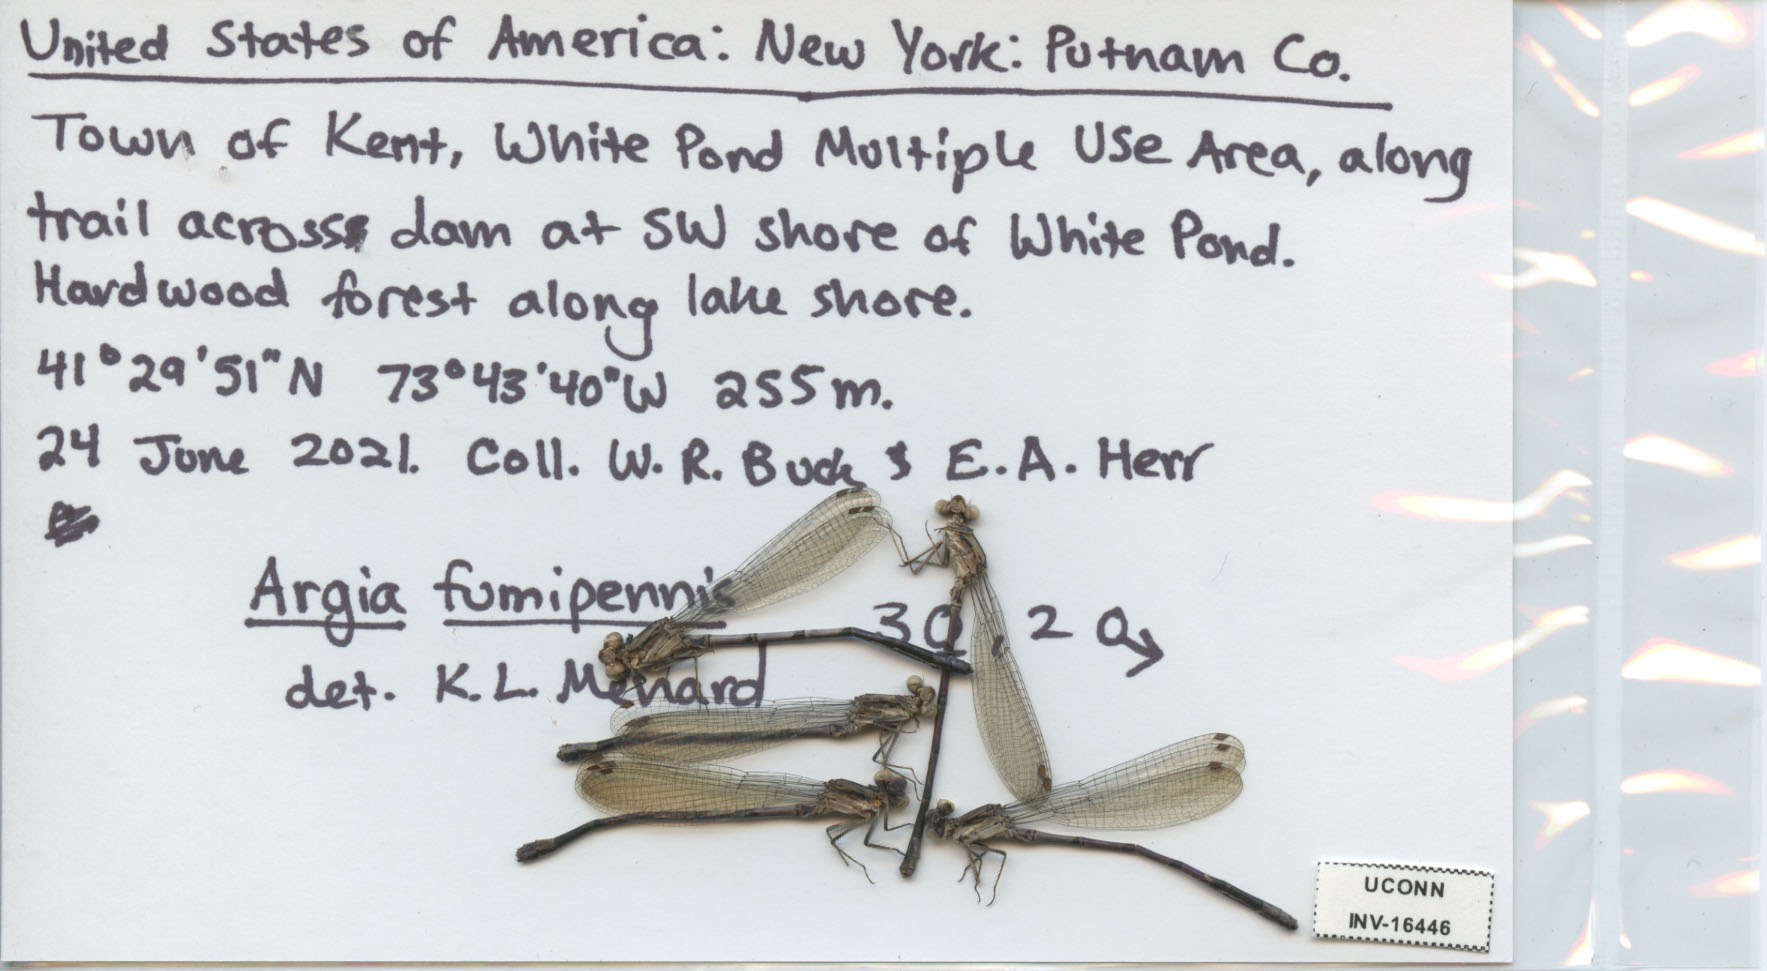 United States of America: New York: Putnam Co.
Town of Kent, White Pond Multiple Use Area, along
trail across dam at SW shore of White Pond.
Hardwood forest along lake shore.
41°29'51"N 73°43'40"W 255m.
24 June 2021. Coll. W. R. Buck & E. A. Herr
Argia fumipennis 3♀ 2♂
det. K. L. Menard
UCONN
INV-16446